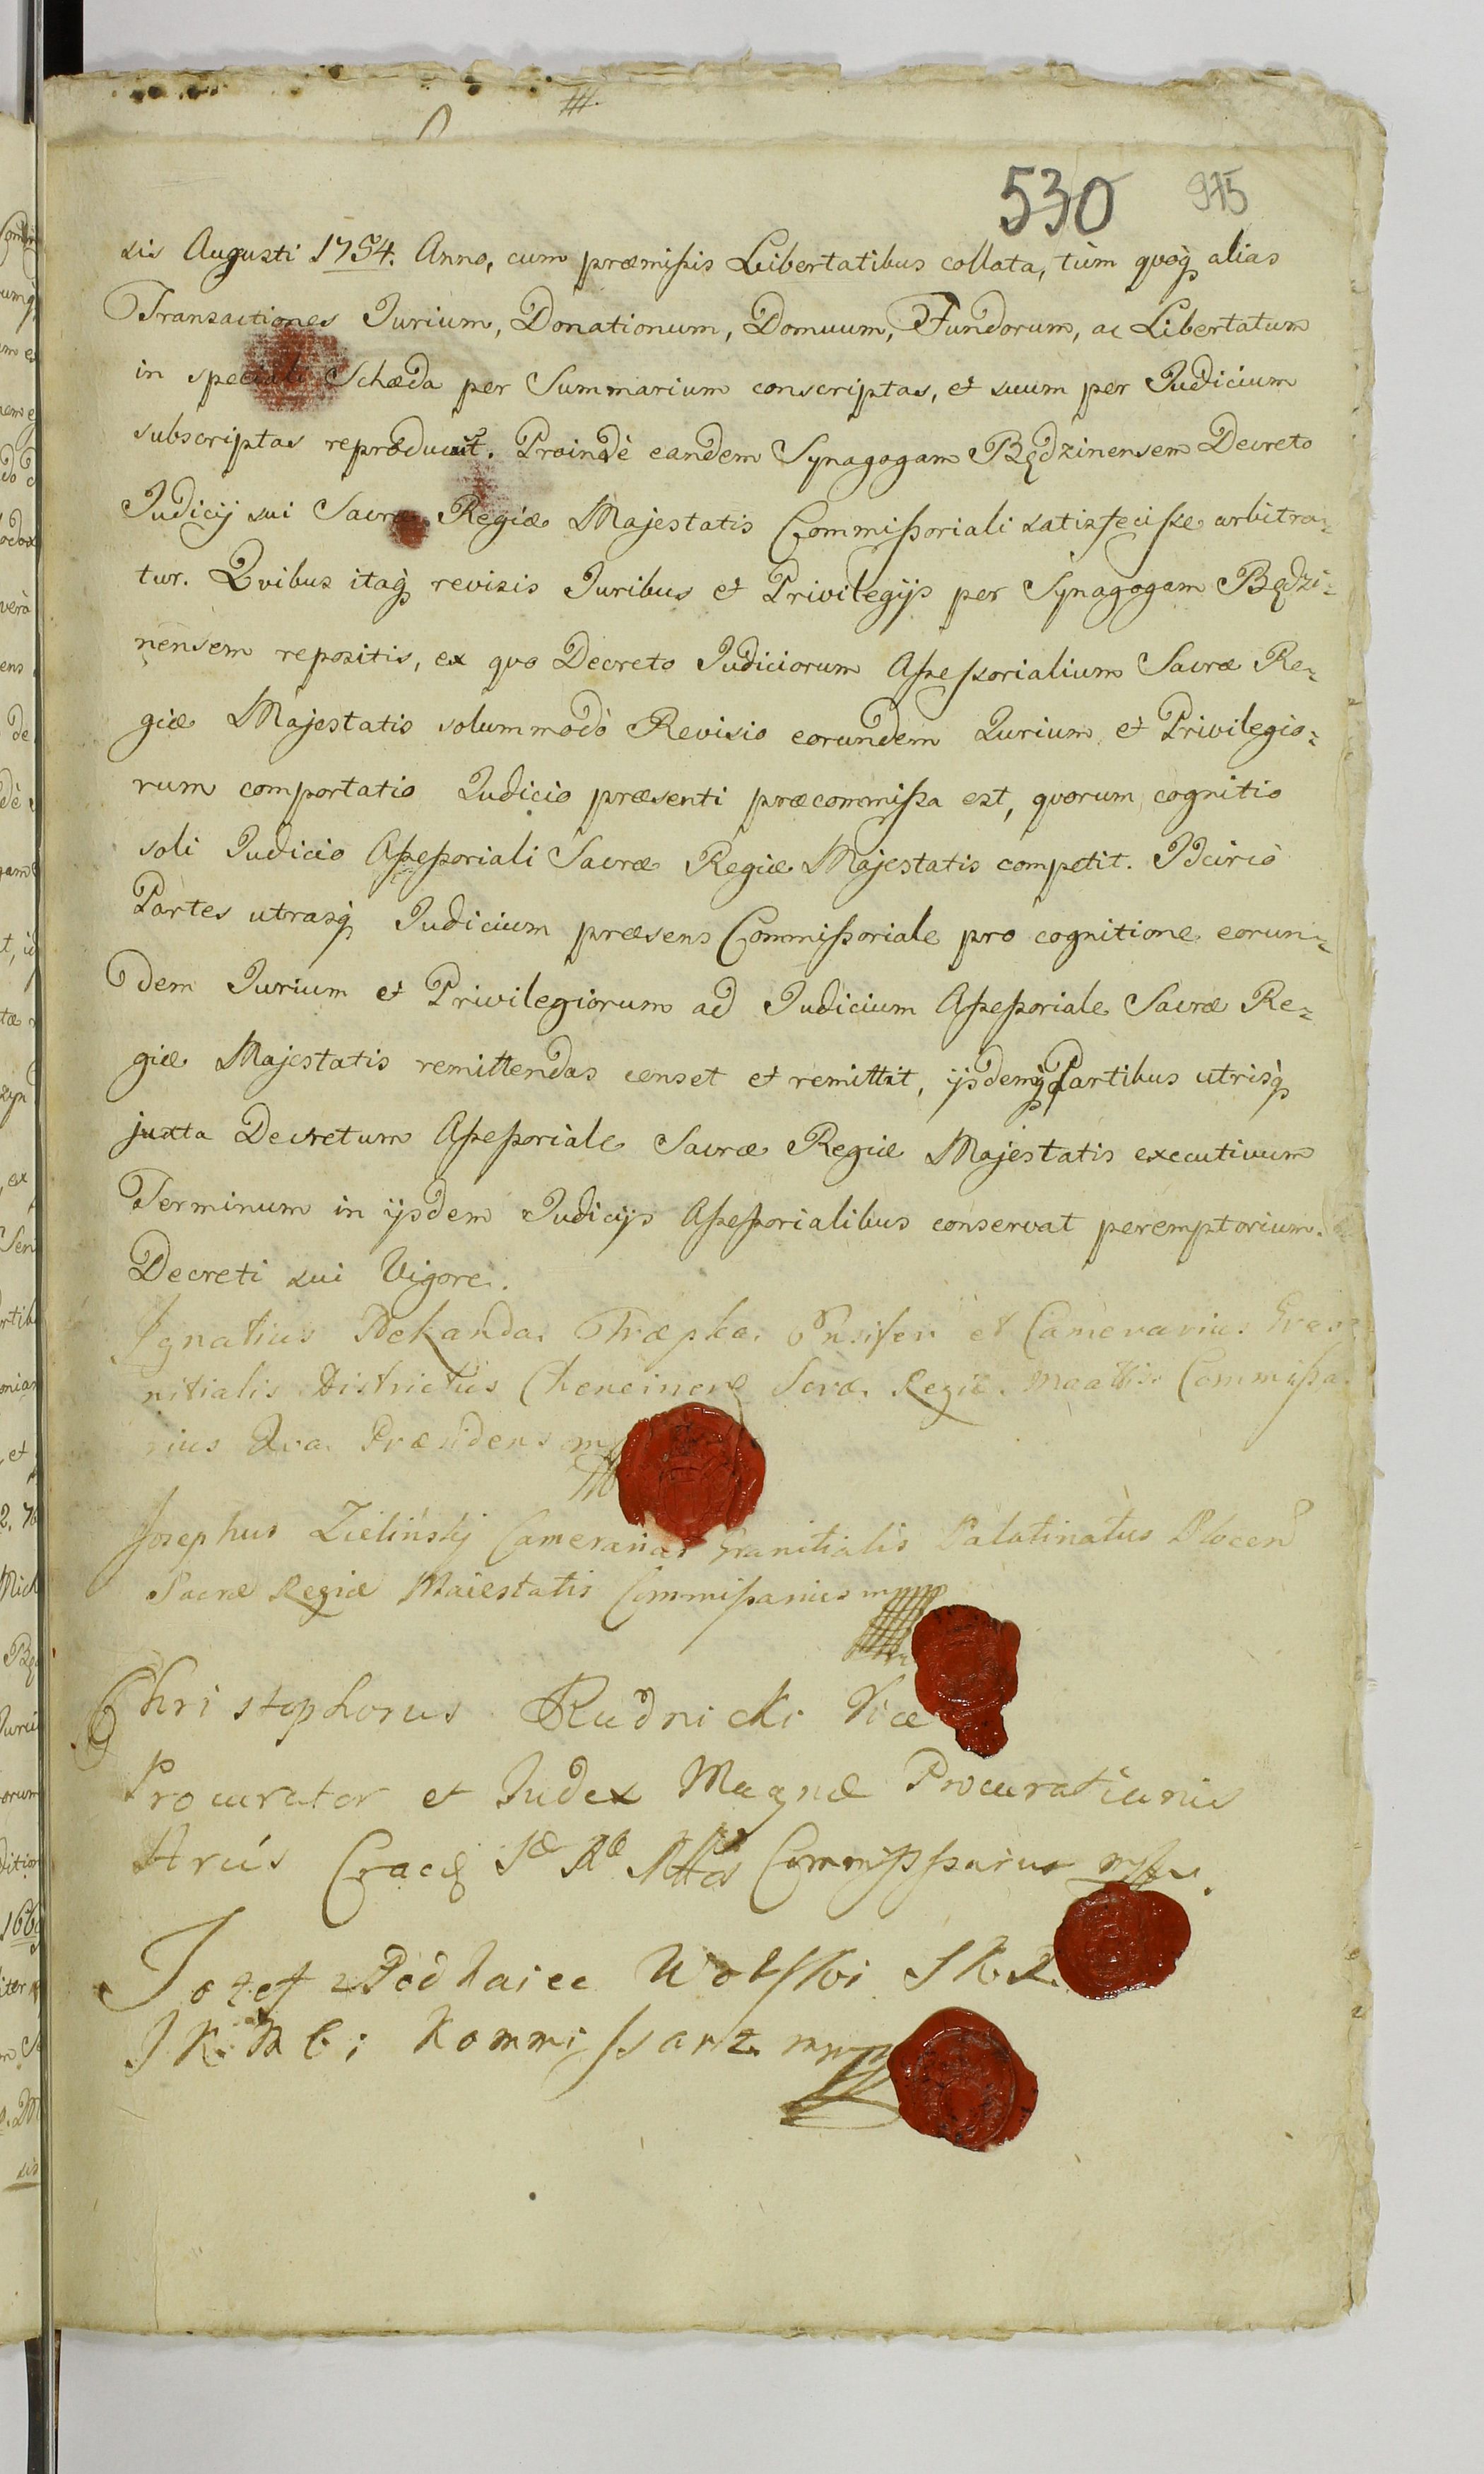 530 975
sis Augusti 1754. Anno, cum præmißis Libertatibus collata, tùm qvoq̨ alias
Transactiones Jurium, Donationum, Domuum, Fundorum, ac Libertatum
in speciali Schæda per Summarium conscriptas, et suum per Judicium
subscriptas reproducit. Proindè eandem Synagogam Będzinensem Decreto
Judicij sui Sacræ Regiæ Majestatis Commißoriali satisfeciße arbitra=
tur. Qvibus itaq̨ revisis Juribus et Privilegijs per Synagogam Będzi=
nensem repositis, ex qvo Decreto Judiciorum Aßeßorialium Sacræ Re=
giæ Majestatis solummodò Revisio eorundem Jurium et Privilegio=
rum comportatio Judicio præsenti præcommißa est, qvorum cognitio
soli Judicio Aßeßoriali Sacræ Regiæ Majestatis competit. Idcircò
Partes utrasq̨ Judicium præsens Commißoriale pro cognitione eorun=
dem Jurium et Privilegiorum ad Judicium Aßeßoriale Sacræ Re=
giæ Majestatis remittendas censet et remittit, ijsdemq̨ Partibus utrisq̨
juxta Decretum Aßeßoriale Sacræ Regiæ Majestatis executivum
Terminum in ijsdem Judicijs Aßeßorialibus conservat peremptorium.
Decreti sui Vigore.
Ignatius Nekanda Træpka Ensifer et Camerarius Gra
nitialis Districtus Chencinen Scræ Regiæ Maattis Commißa
rius Qva Præsidens mp
Josephus Zieliński Camerarius Granitialis Palatinatus Plocen
Sacræ Regiæ Maiestatis Commißarius mp
Christophorus Rudnicki Vice
Procurator et Judex Magnæ Procurationis
Arcis Crac Sæ Ræ Mttis Commißsarius mp.
Jozef z Podhaiec Wolski
J K. M C i Kommissarz mp